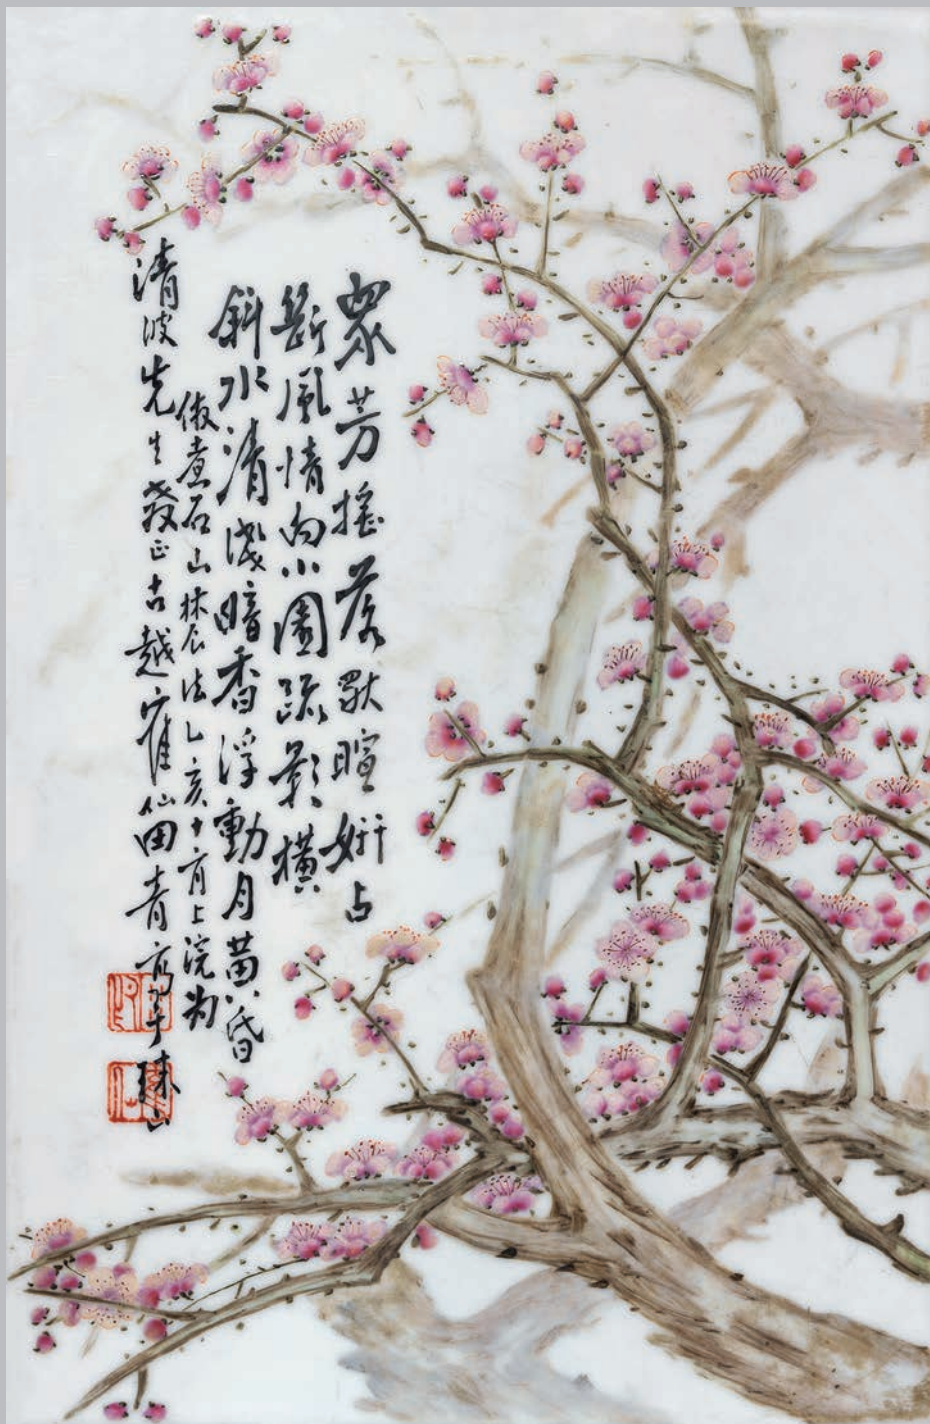 眾芳搖落獨暄妍占
斷風情向小園疏影橫
斜水清淺暗香浮動月黃昏
倣煮石山農法乙亥十月上浣為
清波先生教正古越隺仙田青寫于珠山